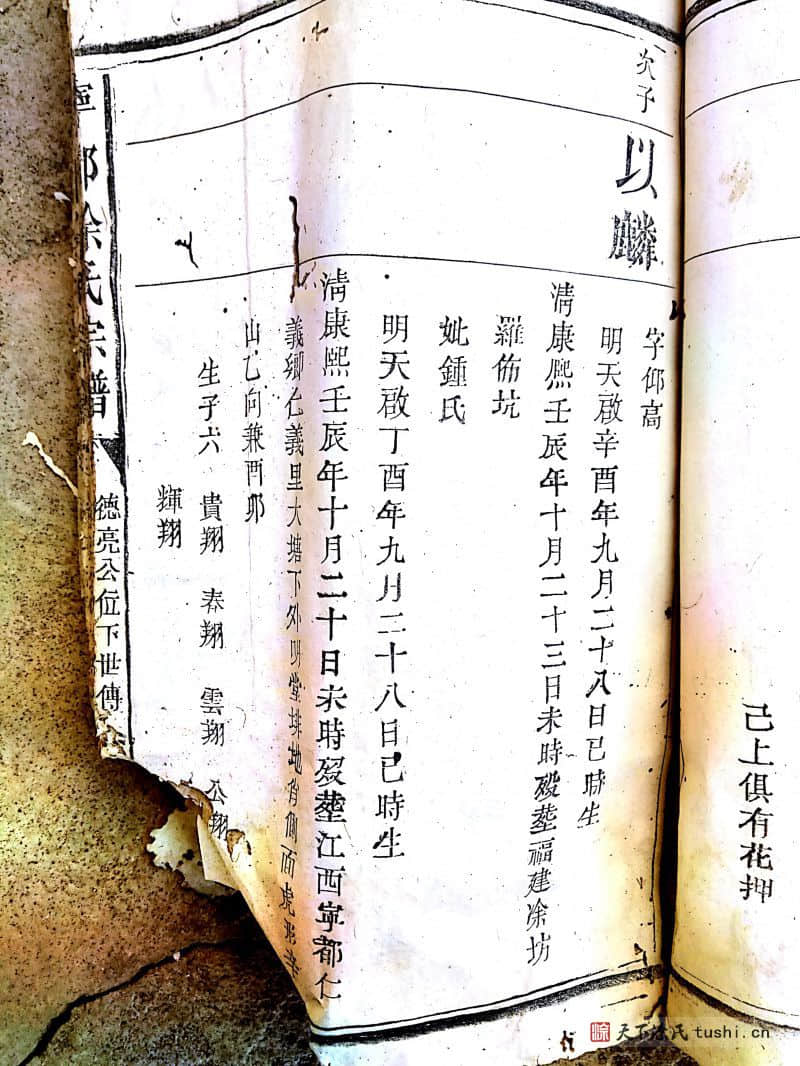 己上俱有花押
次子
以麟
字仰高
明天啟辛酉年九月二十八日巳時生
清康熙壬辰年十月二十三日未時歿塟福建涂坊
羅佈坑
妣鍾氏
明天啟丁酉年九月二十八日巳時生
清康熙壬辰年十月二十日未時歿塟江西寧都仁
義鄉仁義里大塘下外明堂排地名個面虎形
山乙向兼酉卯
生子六 貴翔 泰翔 雲翔 公翔
輝翔
寧都涂氏宗譜
德亮公位下世傳
天下涂氏 tushi.cn